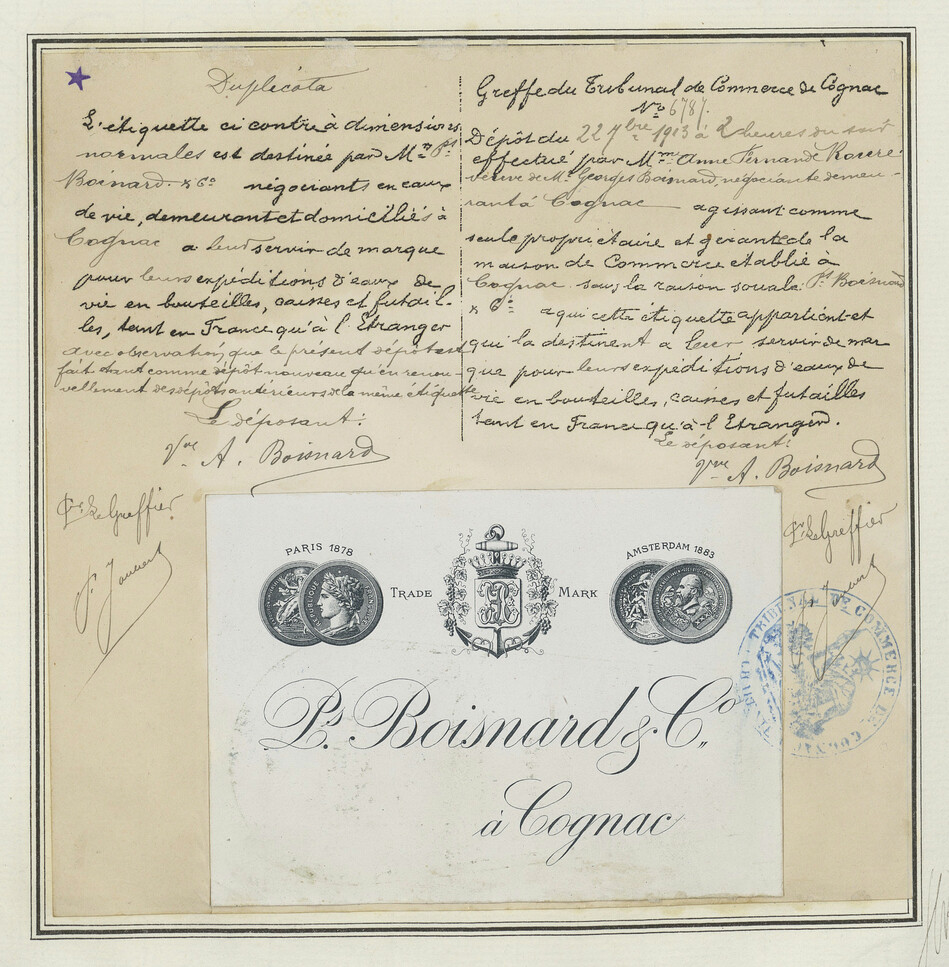 Duplicata
L'étiquette ci contre à dimensions
normales est destinée par M.rs P.s
Boinard & Co négociants en eaux
de vie, demeurant et domiciliés à
Cognac a leur servir de marque
pour leurs expéditions d'eaux de
vie en bouteilles, caisses et futail-
les, tant en France qu'à l'Etranger
avec observation que le présent dépôt est
fait tant comme dépôt nouveau qu'en renou-
vellement des dépôts antérieurs de la même étiquette
Le déposant:
Vve A. Boisnard
Pr Le Greffier
Greffe du Tribunal de Commerce de Cognac
No 6787.
Dépôt du 22 7bre 1913 à 2 heures du soir
effectué par Mme Anne Fernande
veuve de Mr Georges Boisnard, négociante demeu-
rant à Cognac agissant comme
seule propriétaire et gérante de la
maison de Commerce établie à
Cognac sous la raison sociale Ps Boisnard
& Co a qui cette étiquette appartient et
qui la destinent a leur servir de mar
que pour leurs expéditions d'eaux de
vie en bouteilles, caisses et futailles
tant en France qu'à l'Etranger.
Le déposant:
Vve A. Boisnard
Pr Le Greffier
PARIS 1878
AMSTERDAM 1883
TRADE MARK
Ps. Boisnard & Co.,
à Cognac
TRIBUNAL DE COMMERCE DE COGNAC